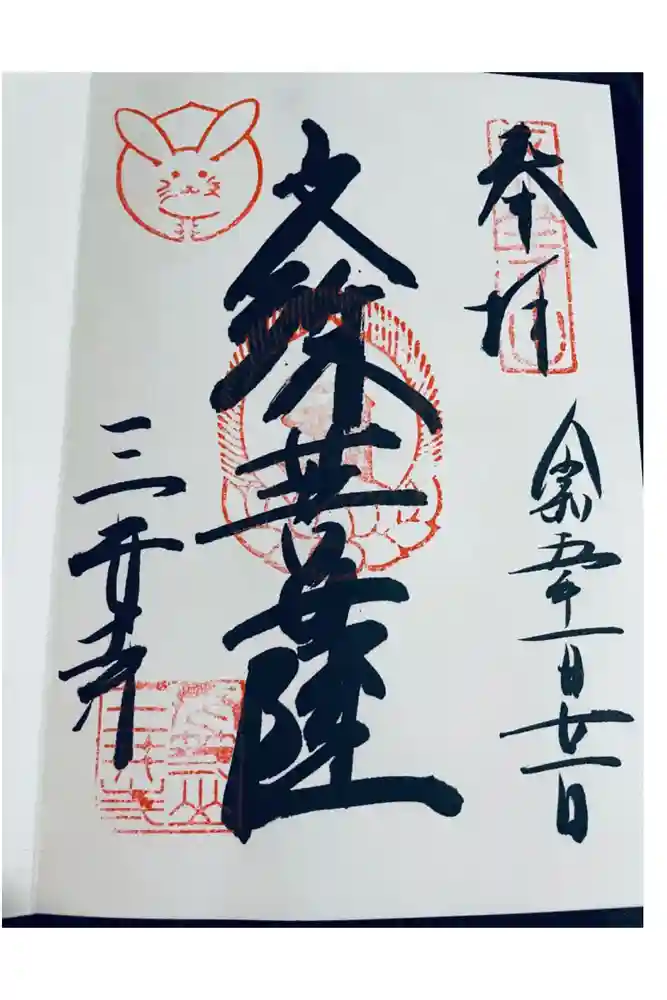 奉拝
令和五年一月廿一日
文殊菩薩
三井寺